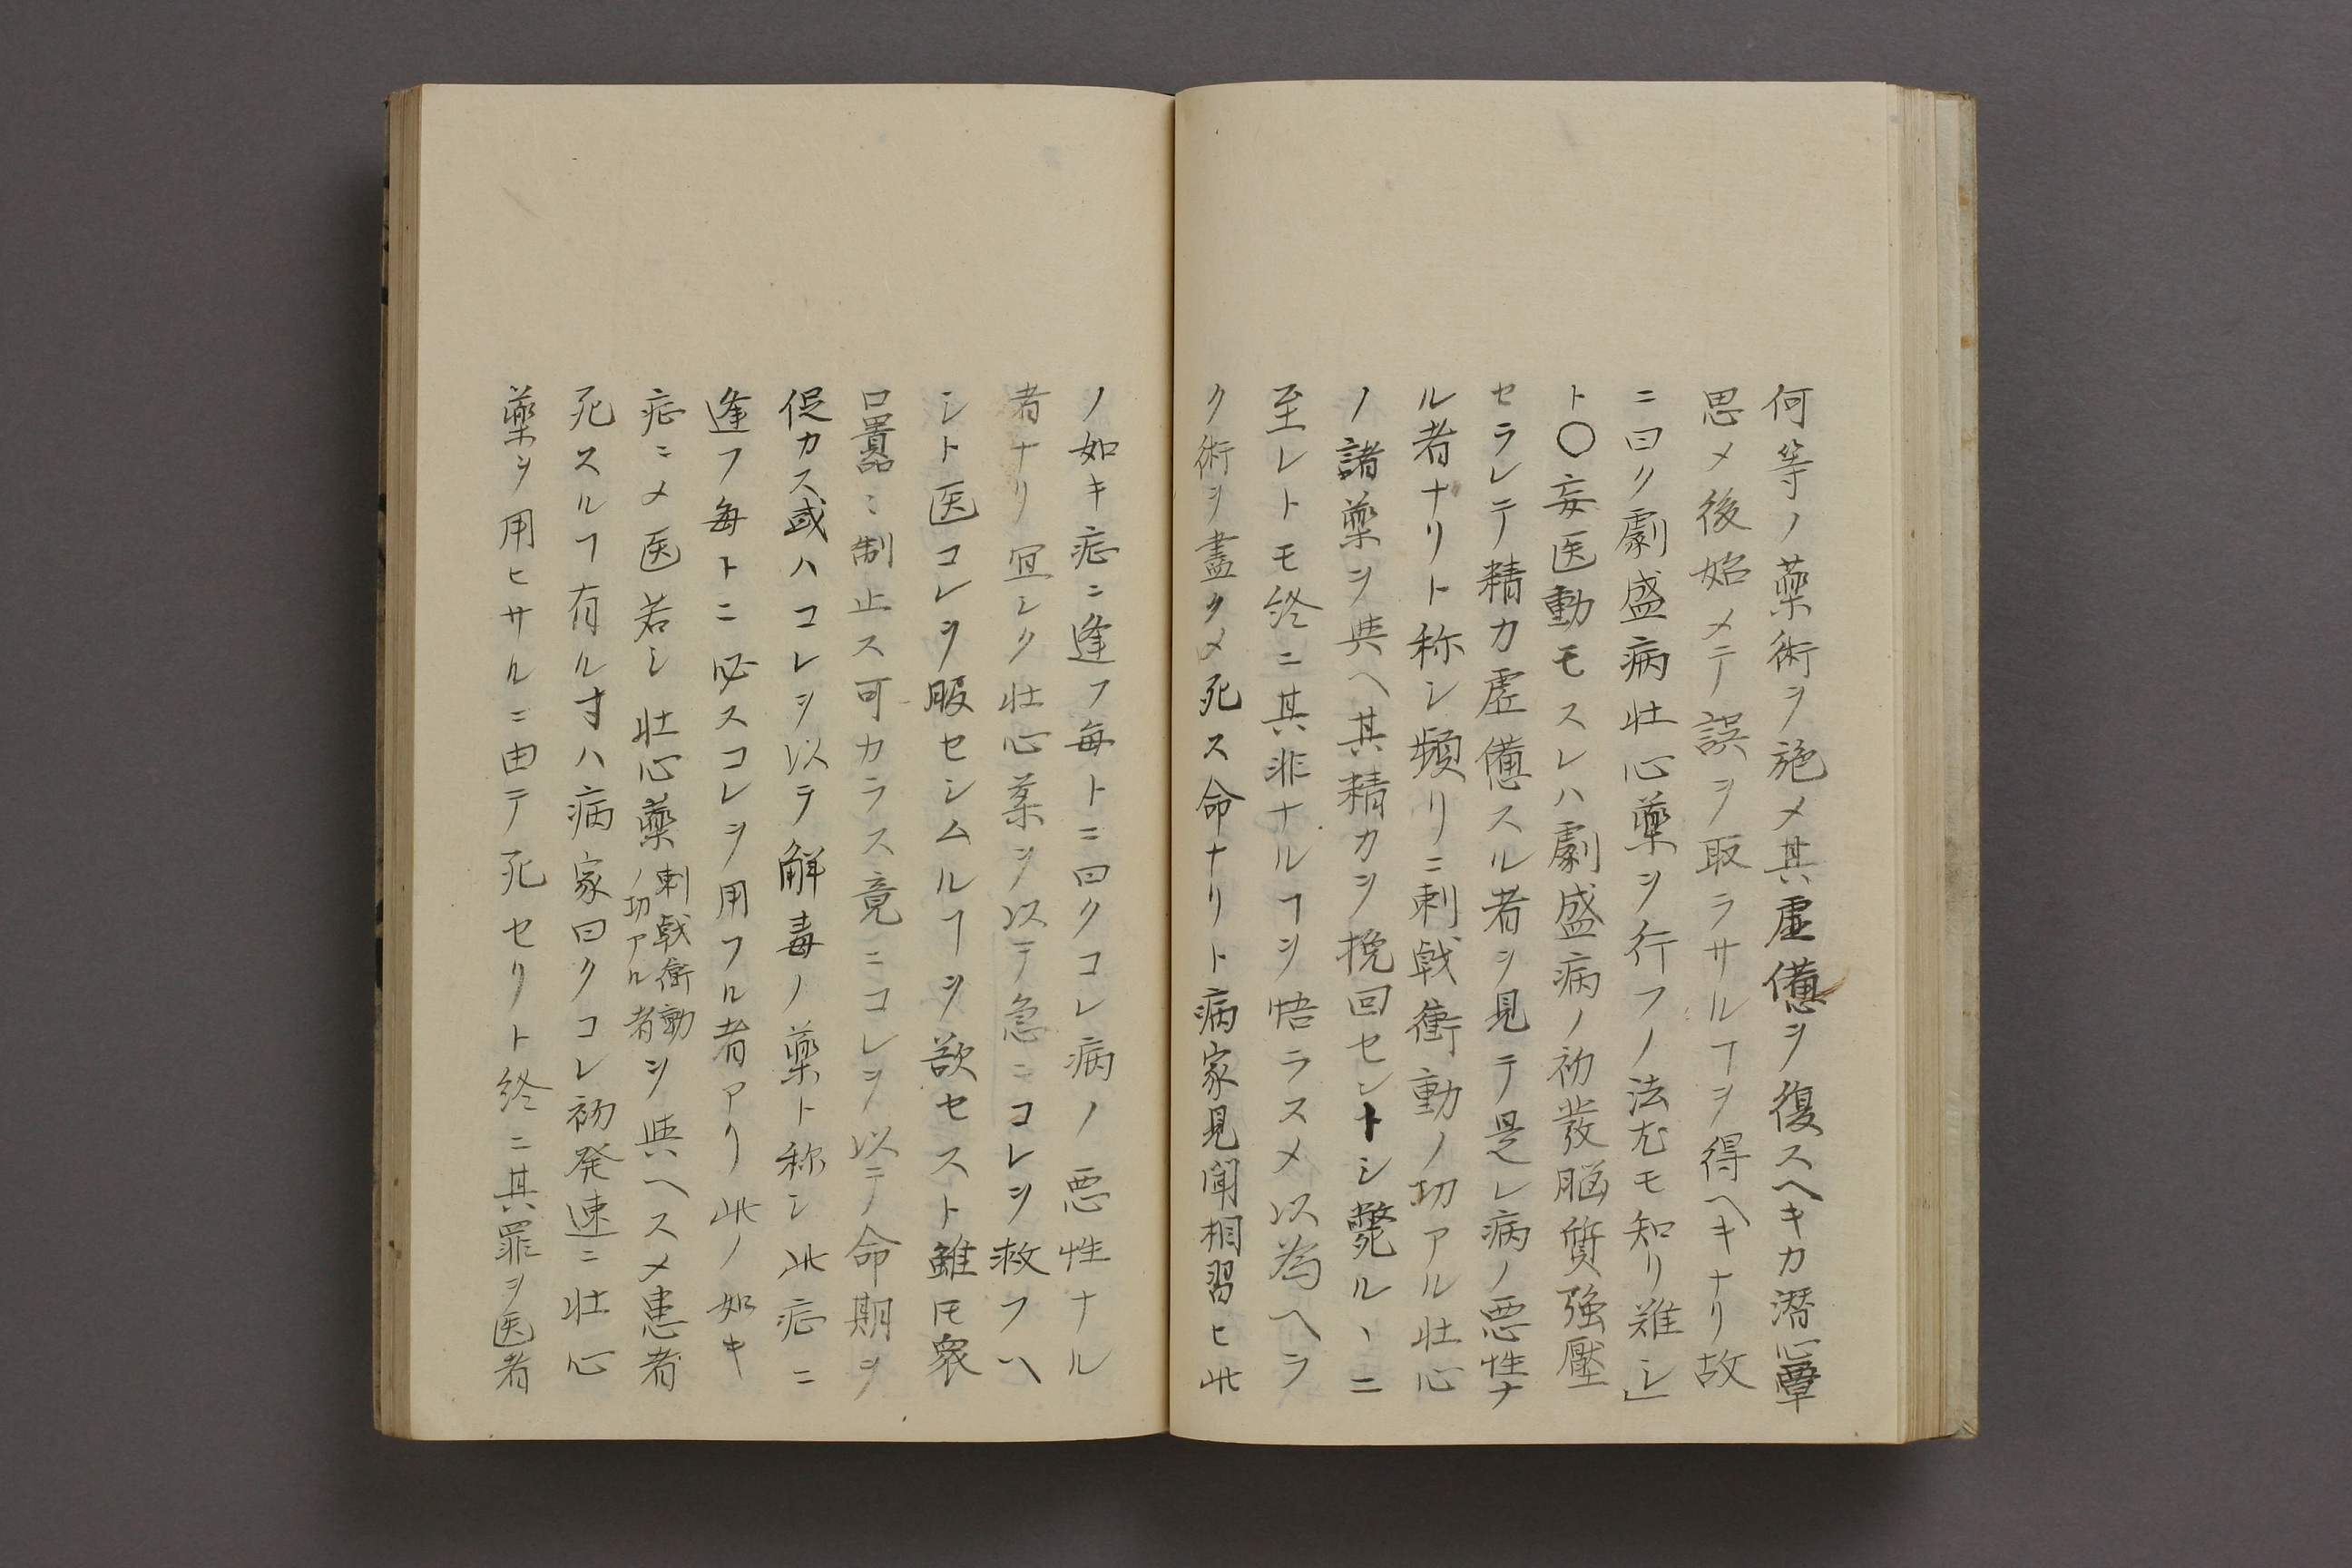 何等ノ藥術ヲ施メ其虚憊ヲ復スヘキカ潜心覃
思メ後始メテ誤ヲ取ラサルヿヲ得ヘキナリ故
ニ曰ク劇盛病壮心藥ヲ行フノ法尤モ知リ難シ」
ト〇妄医動モスレハ劇盛病ノ初發脳質強壓
セラレテ精力虚憊スル者ヲ見テ是レ病ノ悪性ナ
ル者ナリト称シ頻リニ刺戟衝動ノ功アル壮心
ノ諸藥ヲ與ヘ其精力ヲ挽回セントシ斃ルヽニ
至レトモ終ニ其非ナルヿヲ悟ラスメ以為ヘラ
ク術ヲ盡クメ死ス命ナリト病家見聞相習ヒ此
ノ如キ症ニ逢フ毎トニ曰クコレ病ノ悪性ナル
者ナリ冝シク壮心薬ヲ以テ急ニコレヲ救フヘ
シト医コレヲ服セシムルヿヲ欲セスト雖𪜈衆
口囂ミ制止ス可カラス竟ニコレヲ以テ命期ヲ
促カス或ハコレヲ以テ觧毒ノ藥ト称シ此症ニ
逢フ毎トニ必スコレヲ用フル者アリ此ノ如キ
症ニメ医若シ壮心藥刺戟衝動ノ功アル者ヲ與ヘスメ患者
死スルヿ有ル寸ハ病家曰クコレ初発速ニ壮心
藥ヲ用ヒサルニ由テ死セリト終ニ其罪ヲ医者